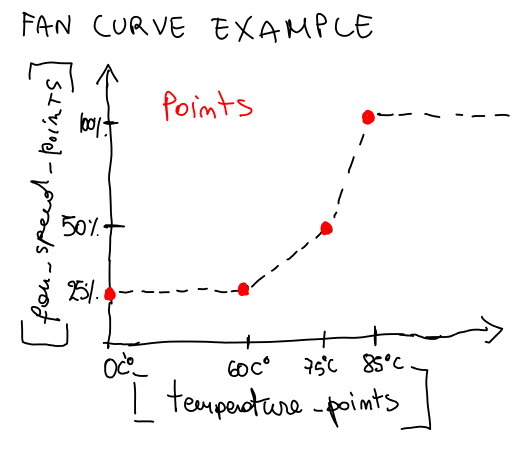 FAN CURVE EXAMPLE
Points
[fan_speed_points]
100%
50%
25%
0C°
60C°
75°C
85°C
[temperature_points]